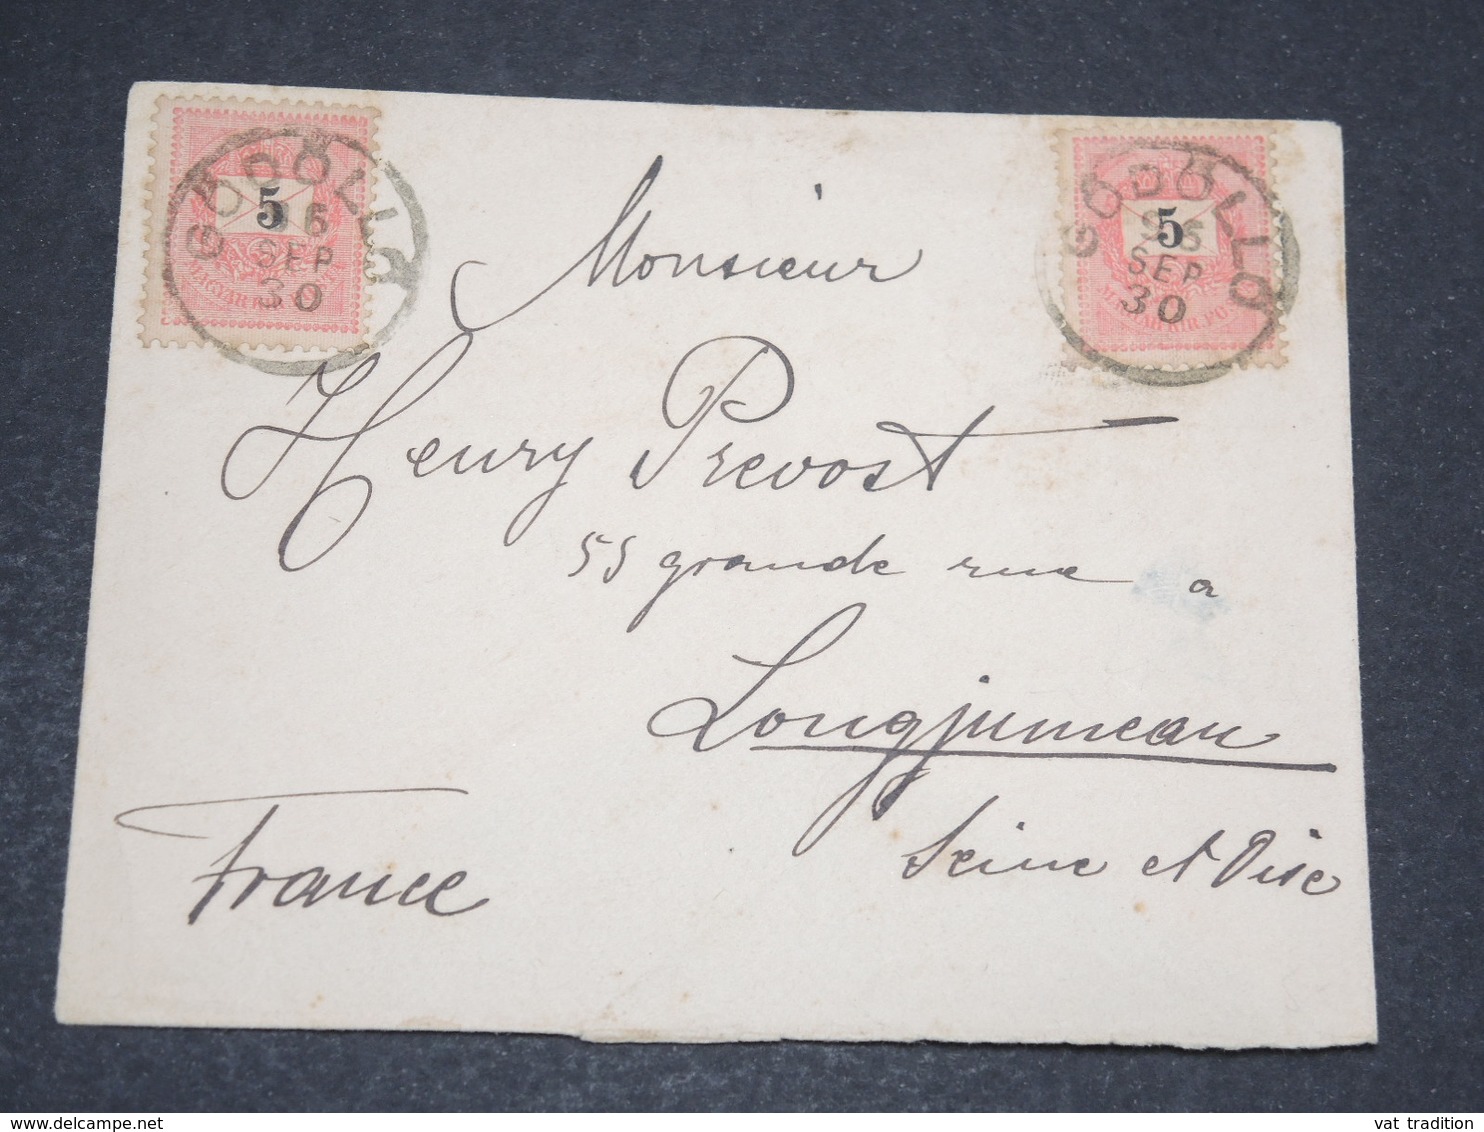 GÖDÖLLŐ
5
96
SEP
30
MAGYAR KIR. POSTA
GÖDÖLLŐ
5
96
SEP
30
MAGYAR KIR. POSTA
Monsieur
Henry Prevost
55 grande rue a
Longjumeau
Seine et Oise
France
vat tradition
www.delcampe.net